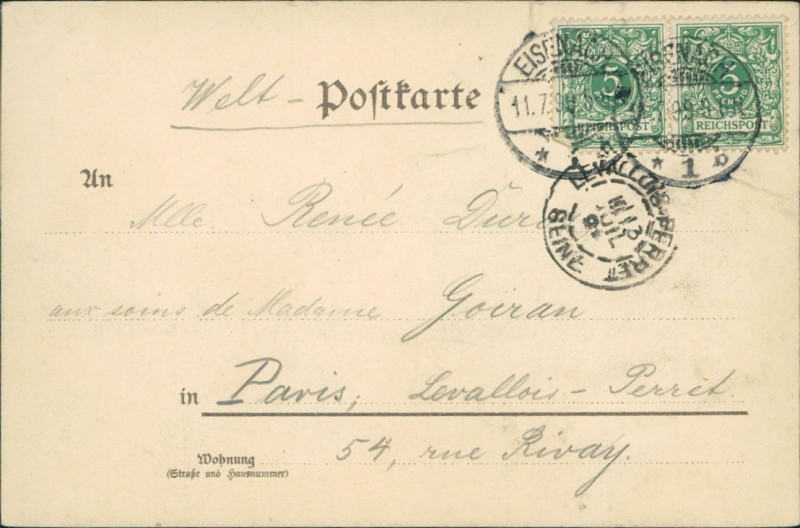 EISENACH
11.7.99
* 1 b
5
REICHSPOST
5
REICHSPOST
Welt - Postkarte
LEVALLOIS-PERRET
SEINE
An
Mlle. Renée
aux soins de Madame Goiran
in Paris, Levallois-Perret.
Wohnung
(Straße und Hausnummer)
54, rue Rivay.